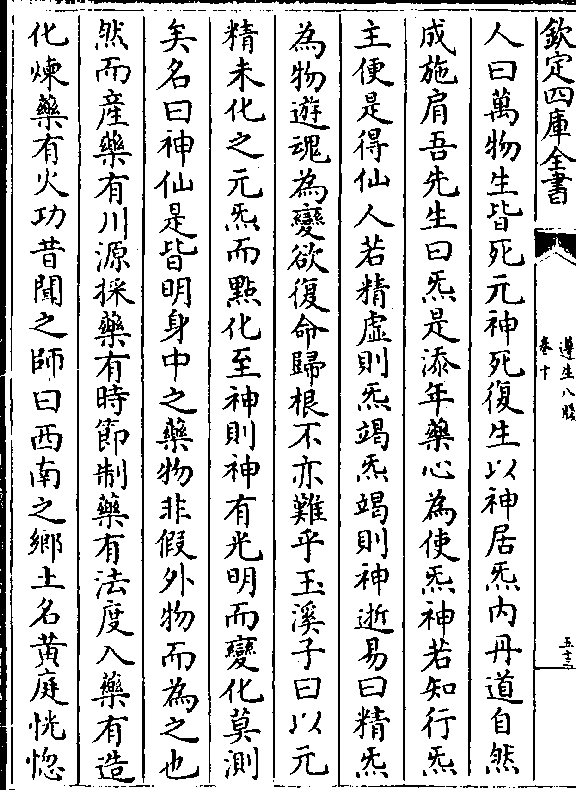 欽定四庫全書
遵生八牋
卷十
五十三
人曰萬物生皆死元神死復生以神居炁内丹道自然
成施肩吾先生曰炁是添年藥心為使炁神若知行炁
主便是得仙人若精虛則炁竭炁竭則神逝易曰精炁
為物遊魂為變欲復命歸根不亦難乎玉溪子曰以元
精未化之元炁而點化至神則神有光明而變化莫測
矣名曰神仙是皆明身中之藥物非假外物而為之也
然而産藥有川源採藥有時節制藥有法度入藥有造
化煉藥有火功昔聞之師曰西南之鄉土名黃庭恍惚